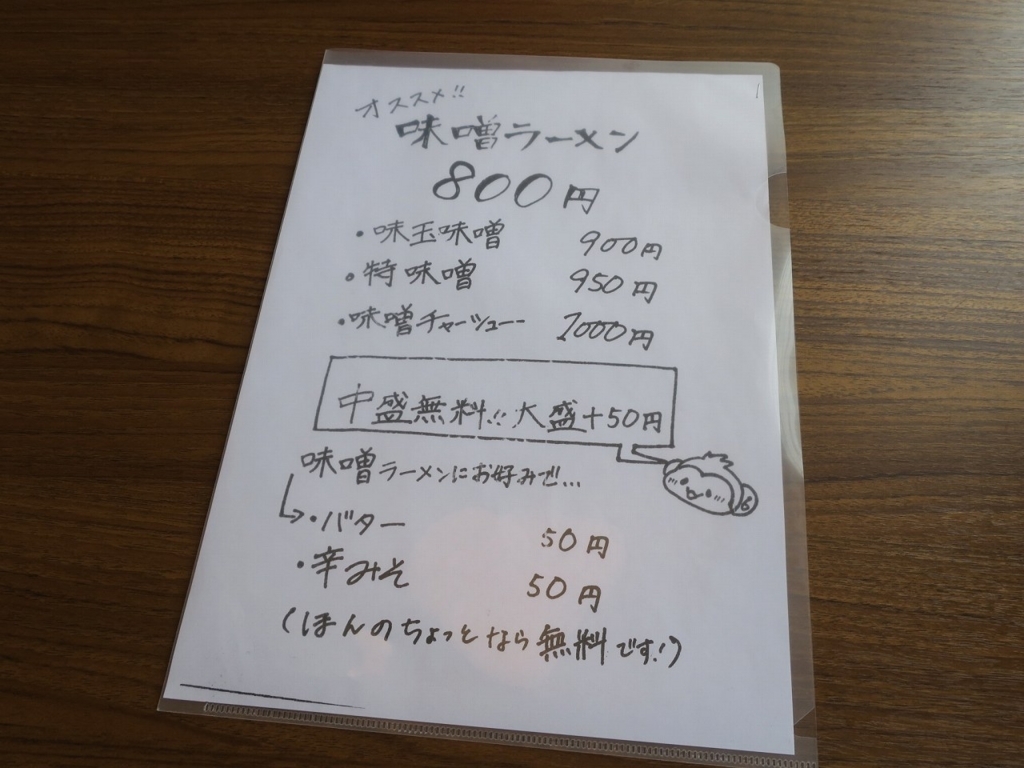 オススメ!!
味噌ラーメン
800円
・味玉味噌 900円
・特味噌 950円
・味噌チャーシュー 1000円
中盛無料!! 大盛+50円
味噌ラーメンにお好みで...
・バター 50円
・辛みそ 50円
(ほんのちょっとなら無料です!)